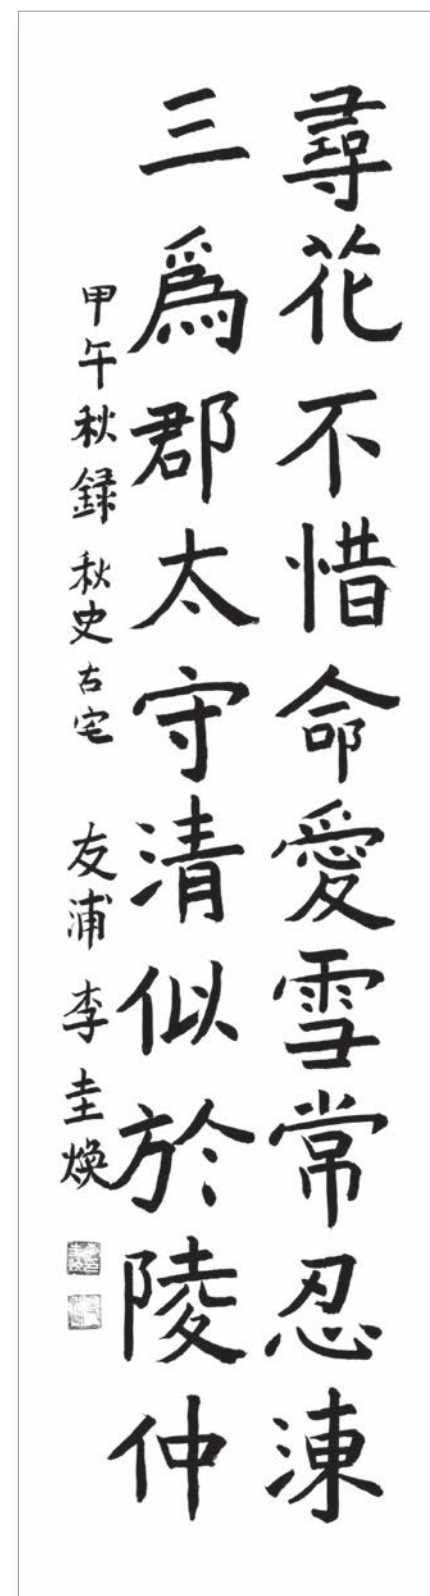 尋花不惜命愛雪常忍涷
三爲郡太守清似於陵仲
甲午秋録 秋史古宅 友浦 李圭煥